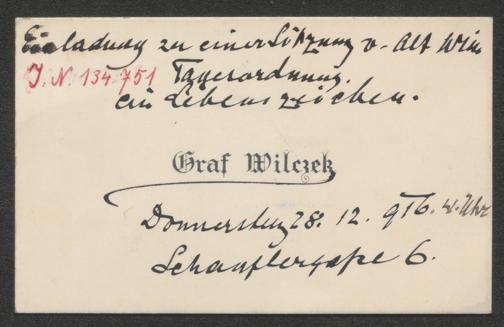 Einladung zu einer Sitzung v. Alt Wien
J. N. 134 751 Tagesordnung.
ein Lebenszeichen.
Graf Wilczek
Donnerstag 28. 12. 916. Uhr
Schauflergaße 6.